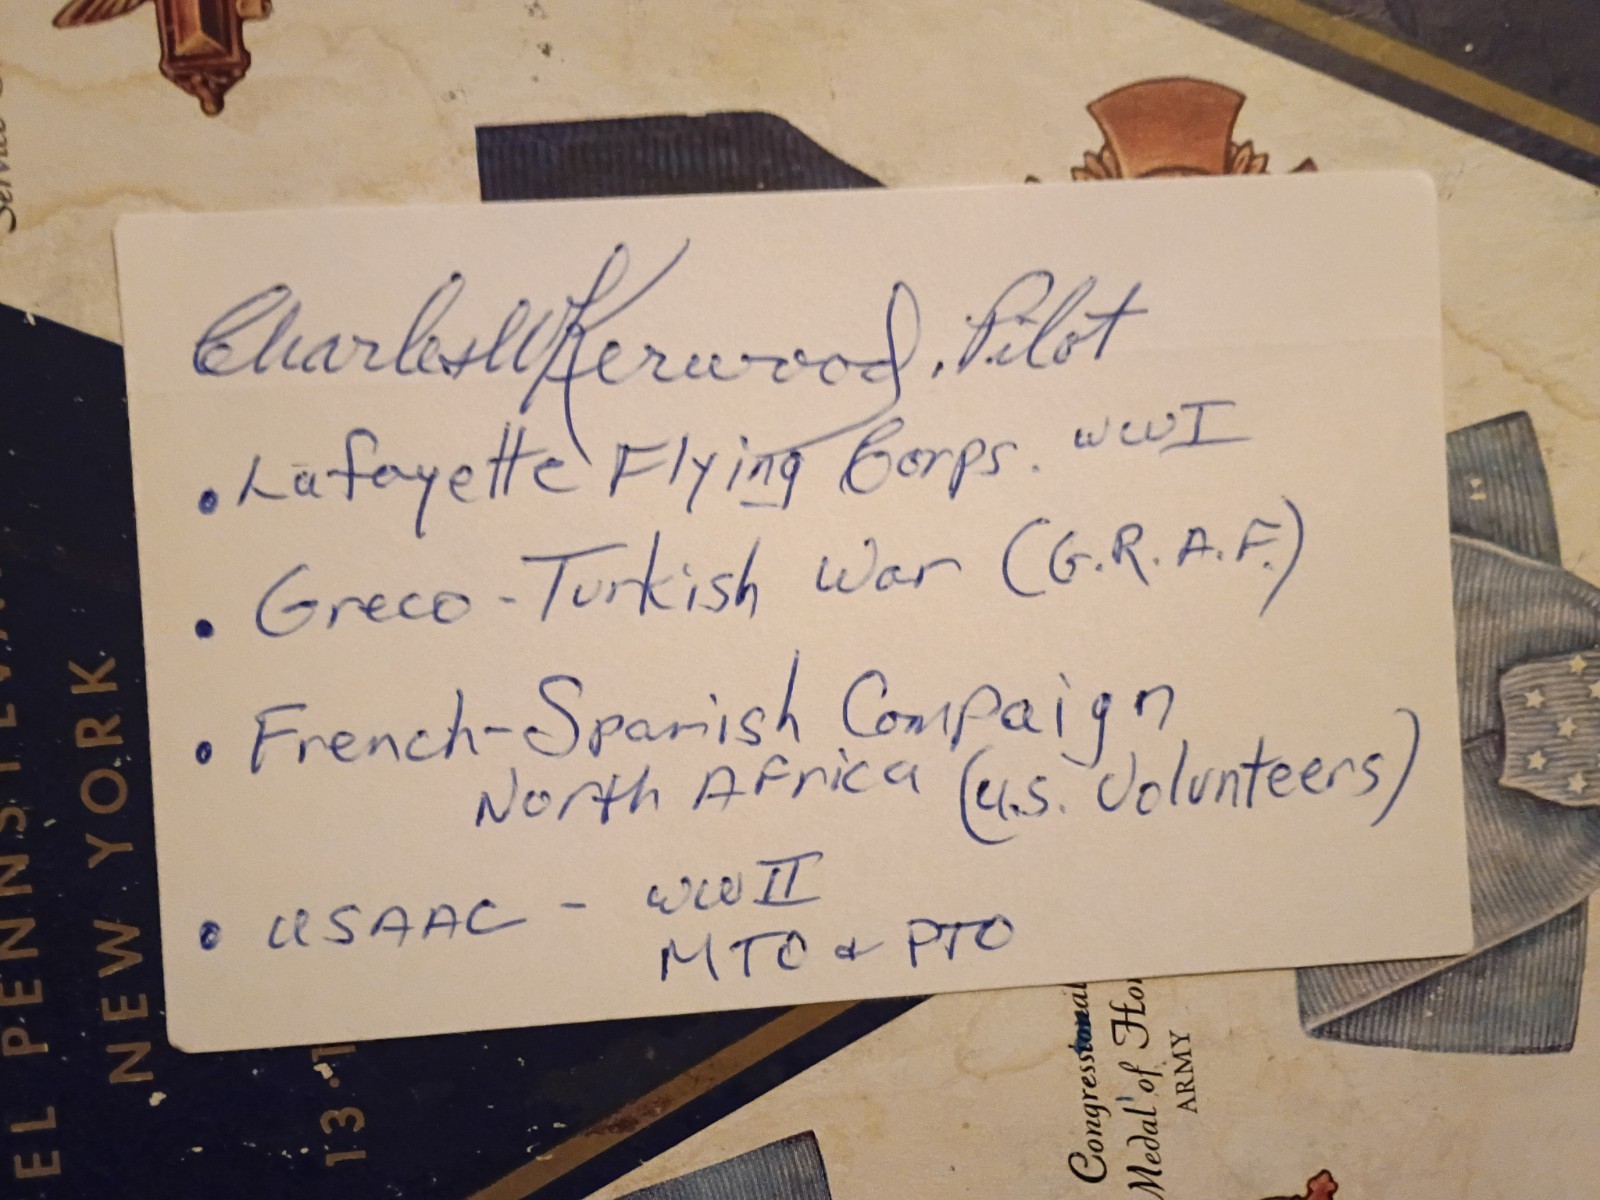 Charles W Kerwood, Pilot
• Lafayette Flying Corps. WWI
• Greco-Turkish War (G.R.A.F.)
• French-Spanish Campaign
North Africa (U.S. Volunteers)
• USAAC - WWII
MTO & PTO
EL PENNSYLVA
NEW YORK
13·1
Congressional
Medal of Ho
ARMY